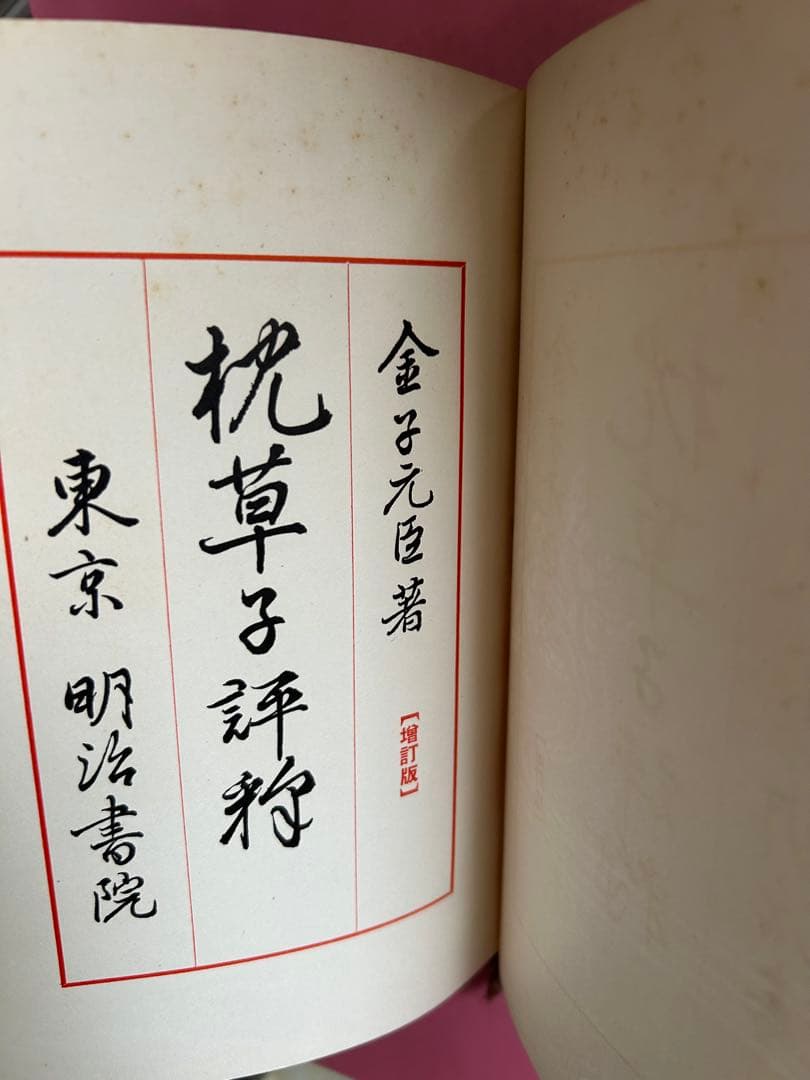 金子元臣著
【増訂版】
枕草子評釈
東京 明治書院